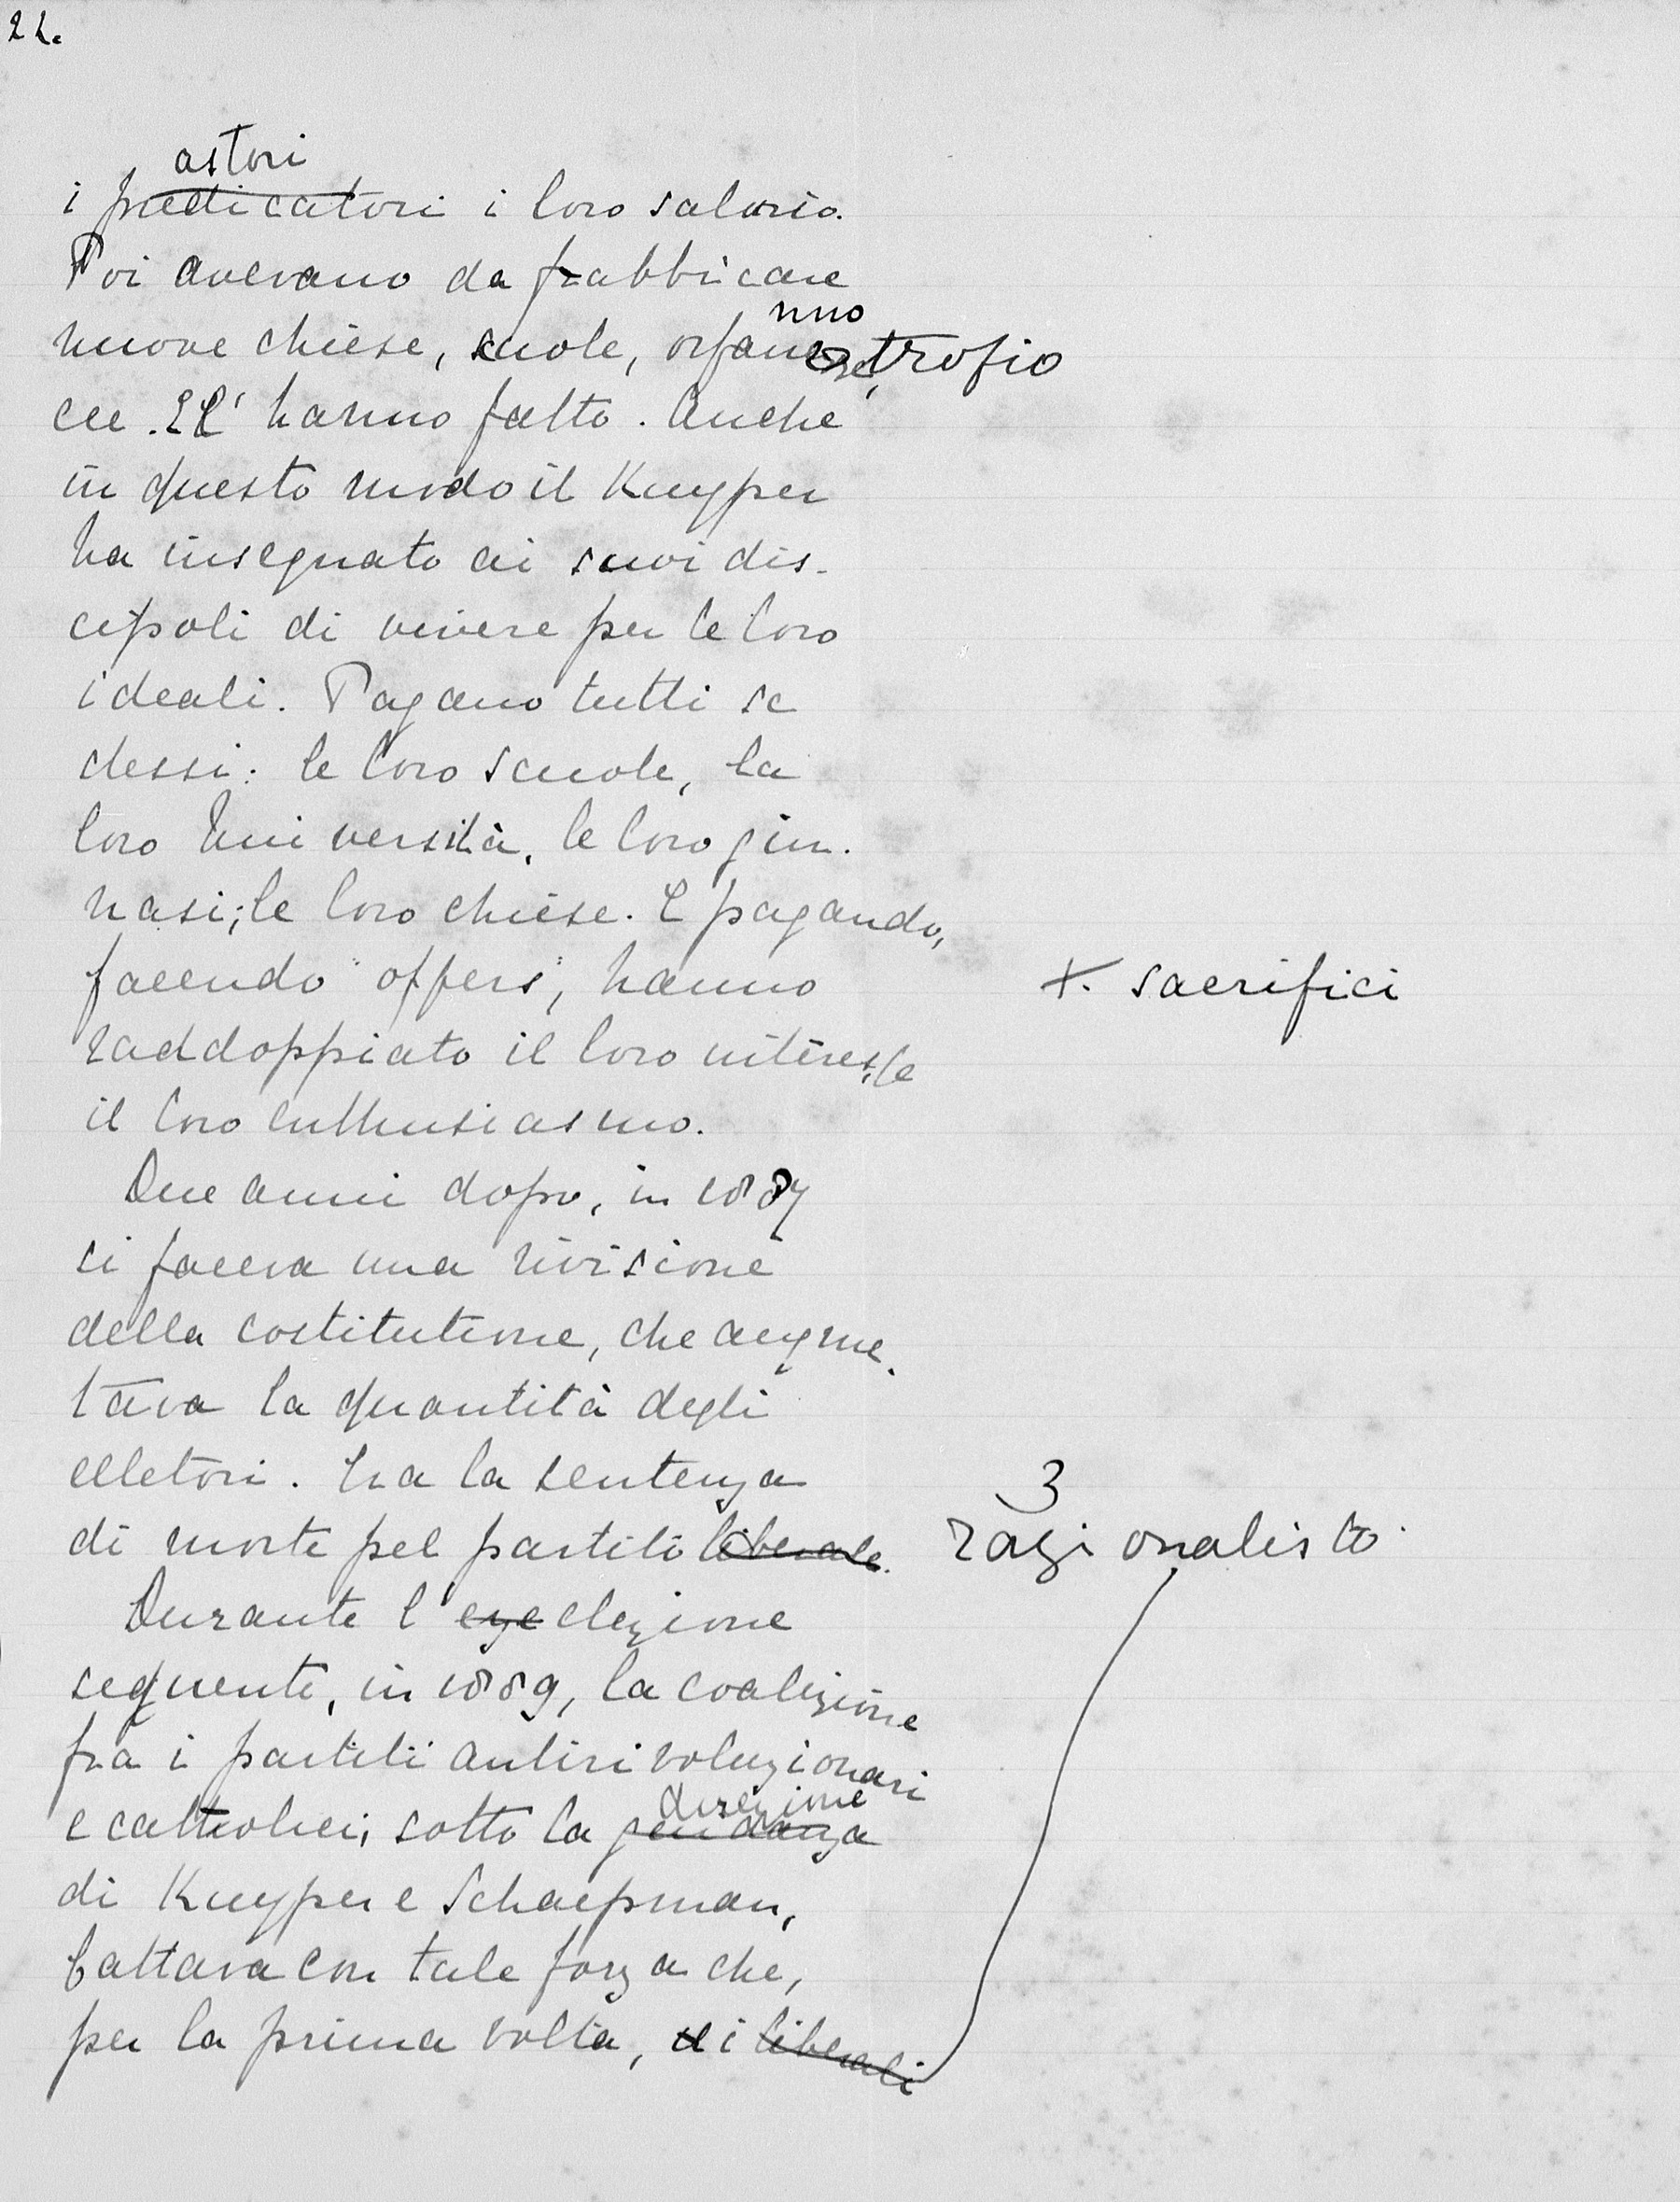 22.
astori
i predicatori i loro salario.
Poi avevano da frabbricare
nno
nuove chiese, scuole, orfane trofio
ecc. E l' hanno fatto. Anche
in questo modo il Kuyper
ha insegnato ai suoi dis-
cipoli di vivere per le loro
ideali. Pagano tutti se
dessi: le loro scuole, la
loro Università, le loro gin-
nasi, le loro chiese. E pagando,
facendo offers, hanno
+. sacrifici
raddoppiato il loro interesse
il loro enthusiasmo.
Due anni dopo, in 1887
si faceva una rivisione
della costitutione, che augme-
tava la quantità degli
elletori. Era la sentenza
3
di morte pel partito liberale. razionalisto.
Durante l' eze elezione
sequente, in 1889, la coalizione
fra i partiti antirivoluzionari
direzione
e cattholici, sotto la guidanza
di Kuyper e Schaepman,
battava con tale forza che,
per la prima volta, i liberali